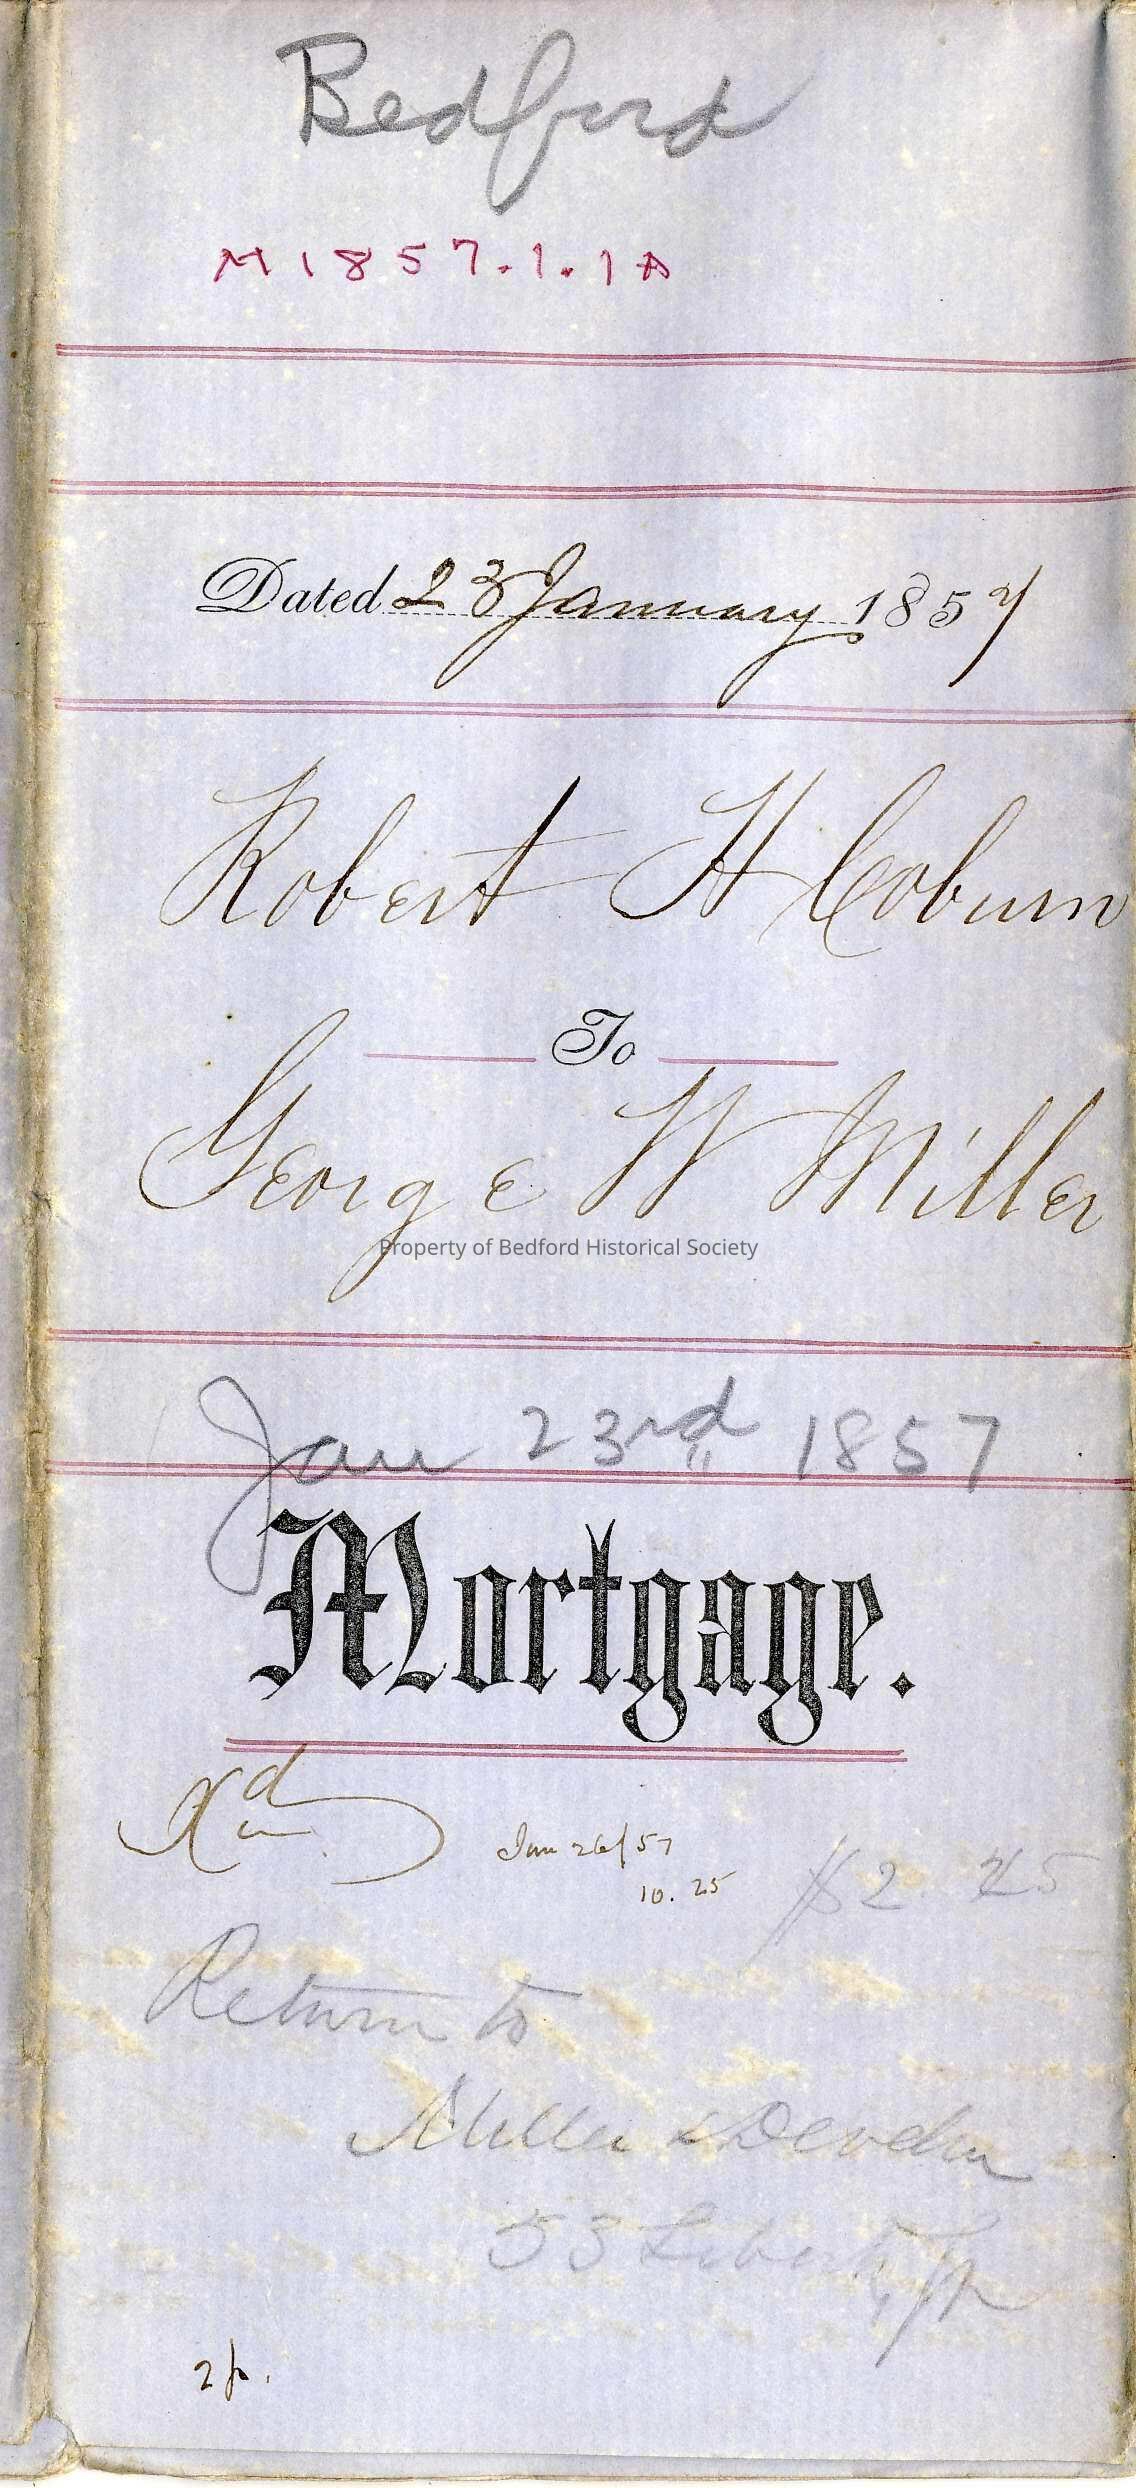 Bedford
M1857.1.1A
Dated 23 January 1857
Robert H Coburn
To
George W Miller
Property of Bedford Historical Society
Jan 23rd 1857
Mortgage.
Jan 26/57
10.25
$2.25
Return to
Miller &
53 Liberty
2p.